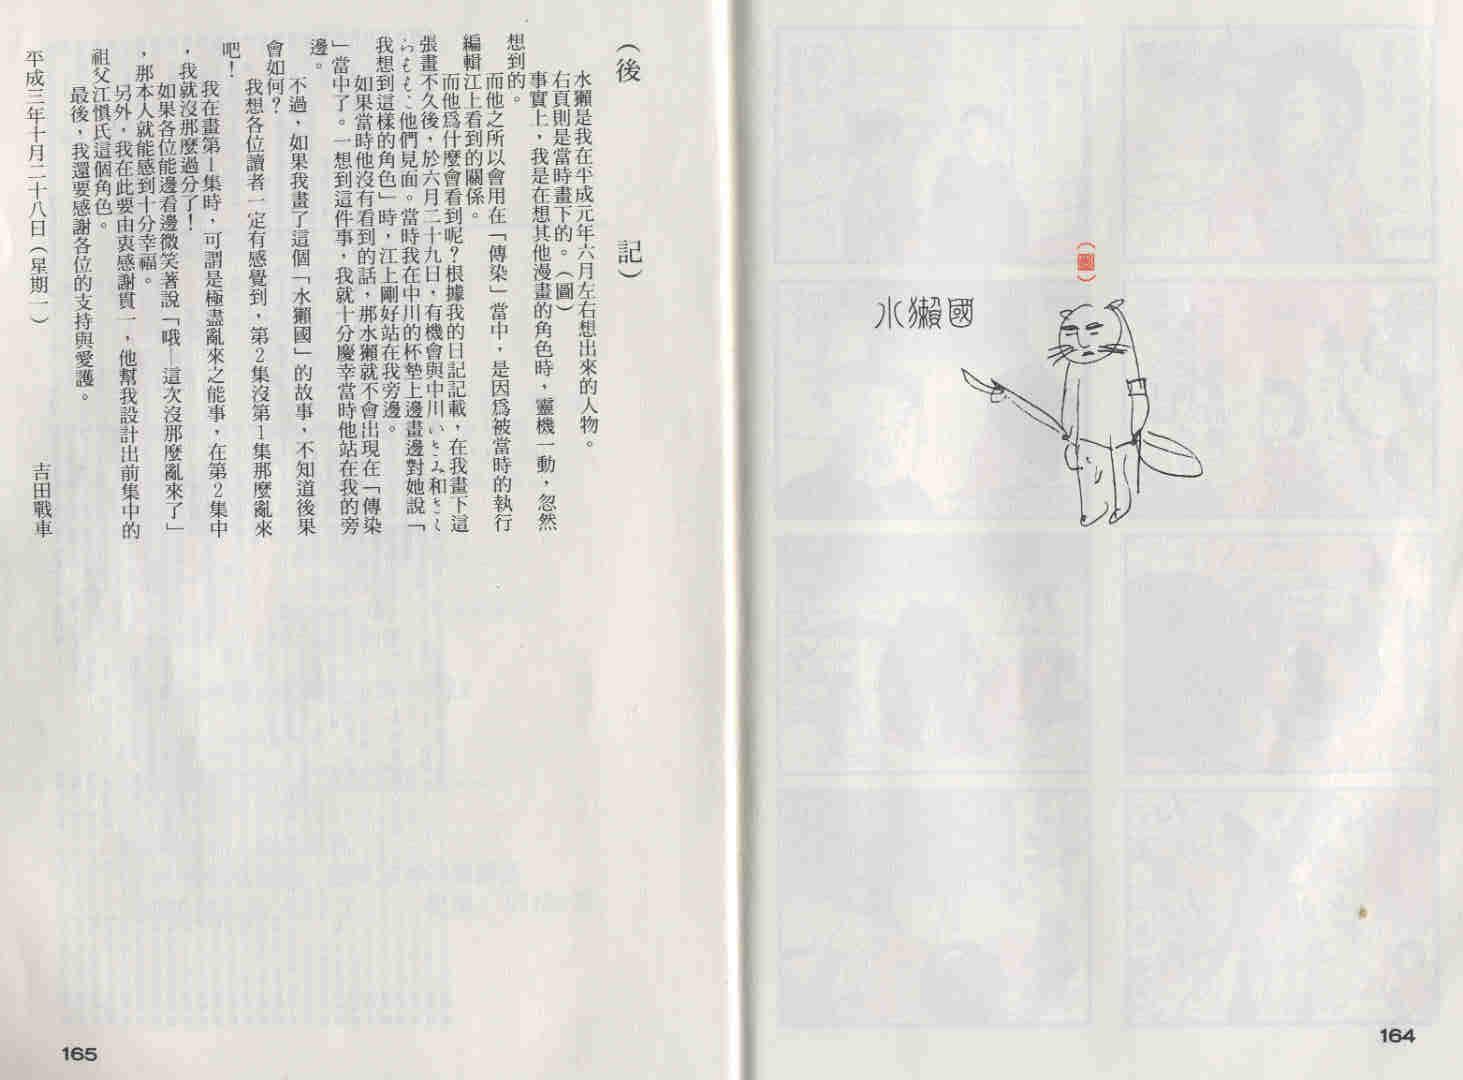 （圖）
水獺國
164
（後記）
水獺是我在平成元年六月左右想出來的人物。
右頁則是當時畫下的。（圖）
事實上，我是在想其他漫畫的角色時，靈機一動，忽然
想到的。
而他之所以會用在「傳染」當中，是因爲被當時的執行
編輯江上看到的關係。
而他爲什麼會看到呢？根據我的日記記載，在我畫下這
張畫不久後，於六月二十九日，有機會與中川いさみ和さく
らももこ他們見面。當時我在中川的杯墊上邊畫邊對她說「
我想到這樣的角色」時，江上剛好站在我旁邊。
如果當時他沒有看到的話，那水獺就不會出現在「傳染
」當中了。一想到這件事，我就十分慶幸當時他站在我的旁
邊。
不過，如果我畫了這個「水獺國」的故事，不知道後果
會如何？
我想各位讀者一定有感覺到，第2集沒第1集那麼亂來
吧！
我在畫第1集時，可謂是極盡亂來之能事，在第2集中
，我就沒那麼過分了！
如果各位能邊看邊微笑著說「哦—這次沒那麼亂來了」
，那本人就能感到十分幸福。
另外，我在此要由衷感謝貫一，他幫我設計出前集中的
祖父江慎氏這個角色。
最後，我還要感謝各位的支持與愛護。
平成三年十月二十八日（星期一）
吉田戰車
165